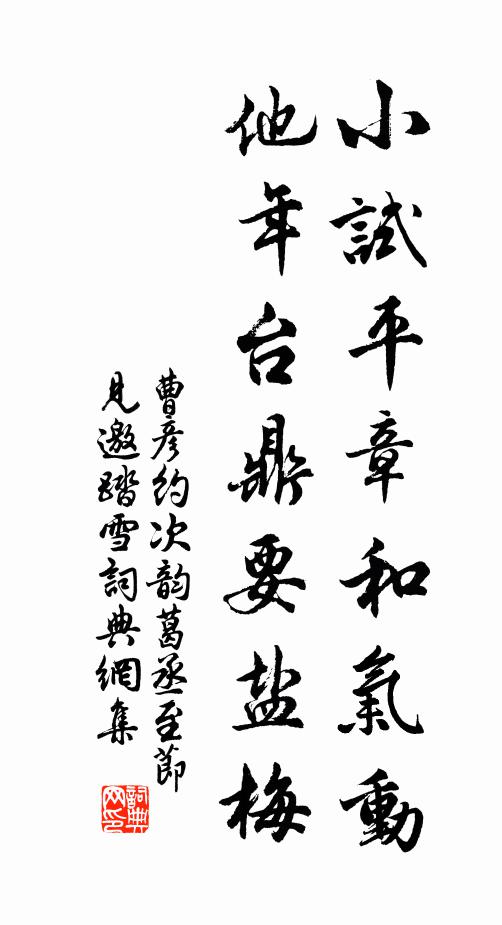 小試平章和氣動
他年台鼎要盐梅
曹彦约次韵葛丞至節
見邀踏雪詞典網集
詞典
网印